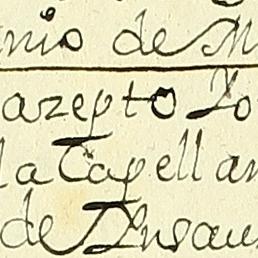 nio de M
azepto Yo
la Capellan
de Insau